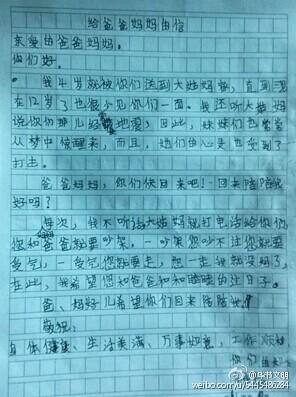 给爸爸妈妈的信
亲爱的爸爸妈妈。
你们好。
我4岁就被你们送到大姑妈势,直到现
在12岁了也很少见你们一面。我还听大姑妈
说你们那儿经常地震,因此,妹妹们也常常
从梦中惊醒来,而且,她们的心灵也受到了
打击。
爸爸妈妈,你们快回来吧!回来陪陪我
好吗?
每次,我不听话大姑妈就打电话给你们,
你和爸爸就要吵架,一吵架您吵不过您就要
受气,一受气您就要走,想一走我就没妈了,
在此,我希望您和爸爸和和睦睦的过日子。
爸、妈好儿希望你们回来陪陪她!
敬祝:
身体健康、生活美满、万事如意、工作顺利
你们的
@华书文明
weibo.com/u/5445486284